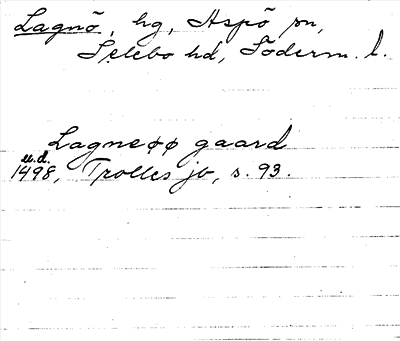 Lagnö, hg, Aspö sn,
Selebo hd, Söderm. l.
Lagneøø gaard
u.d.
1498, Trolles jb, s. 93.